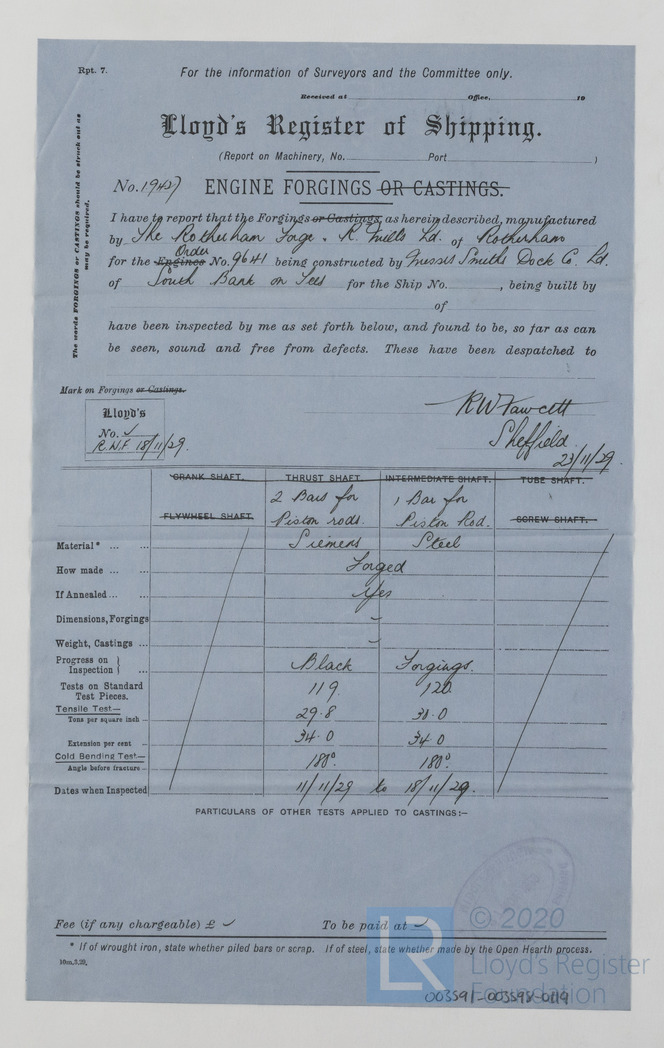 Rpt. 7.
For the information of Surveyors and the Committee only.
Received at Office, 19
Lloyd's Register of Shipping.
(Report on Machinery, No. Port )
The words FORGINGS or CASTINGS should be struck out as
may be required.
No. 1947 ENGINE FORGINGS OR CASTINGS.
I have to report that the Forgings or Castings, as herein described, manufactured
by The Rotherham Forge & R. Mills Ld. of Rotherham
Order
for the Engines No. 9641 being constructed by Messrs Smiths Dock Co. Ld.
of South Bank on Tees for the Ship No. , being built by
of
have been inspected by me as set forth below, and found to be, so far as can
be seen, sound and free from defects. These have been despatched to
Mark on Forgings or Castings.
Lloyd's
No. ✓
R.W.F. 18/11/29.
RW Fawcett
Sheffield
23/11/29.
CRANK SHAFT. THRUST SHAFT. INTERMEDIATE SHAFT. TUBE SHAFT.
2 Bars for 1 Bar for
FLYWHEEL SHAFT. Piston rods. Piston Rod. SCREW SHAFT.
Material* ... ... Siemens Steel
How made ... ... Forged
If Annealed... ... Yes
Dimensions, Forgings
Weight, Castings ...
Progress on Inspection } ... Black Forgings.
Tests on Standard Test Pieces. 119. 120.
Tensile Test—
Tons per square inch 29.8 30.0
Extension per cent 34.0 34.0
Cold Bending Test—
Angle before fracture 180°. 180°.
Dates when Inspected 11/11/29 to 18/11/29.
PARTICULARS OF OTHER TESTS APPLIED TO CASTINGS:—
Fee (if any chargeable) £ ✓ To be paid at ✓
* If of wrought iron, state whether piled bars or scrap. If of steel, state whether made by the Open Hearth process.
10m,3.29.
LR
© 2020
Lloyd's Register
Foundation
003591-003598-0119